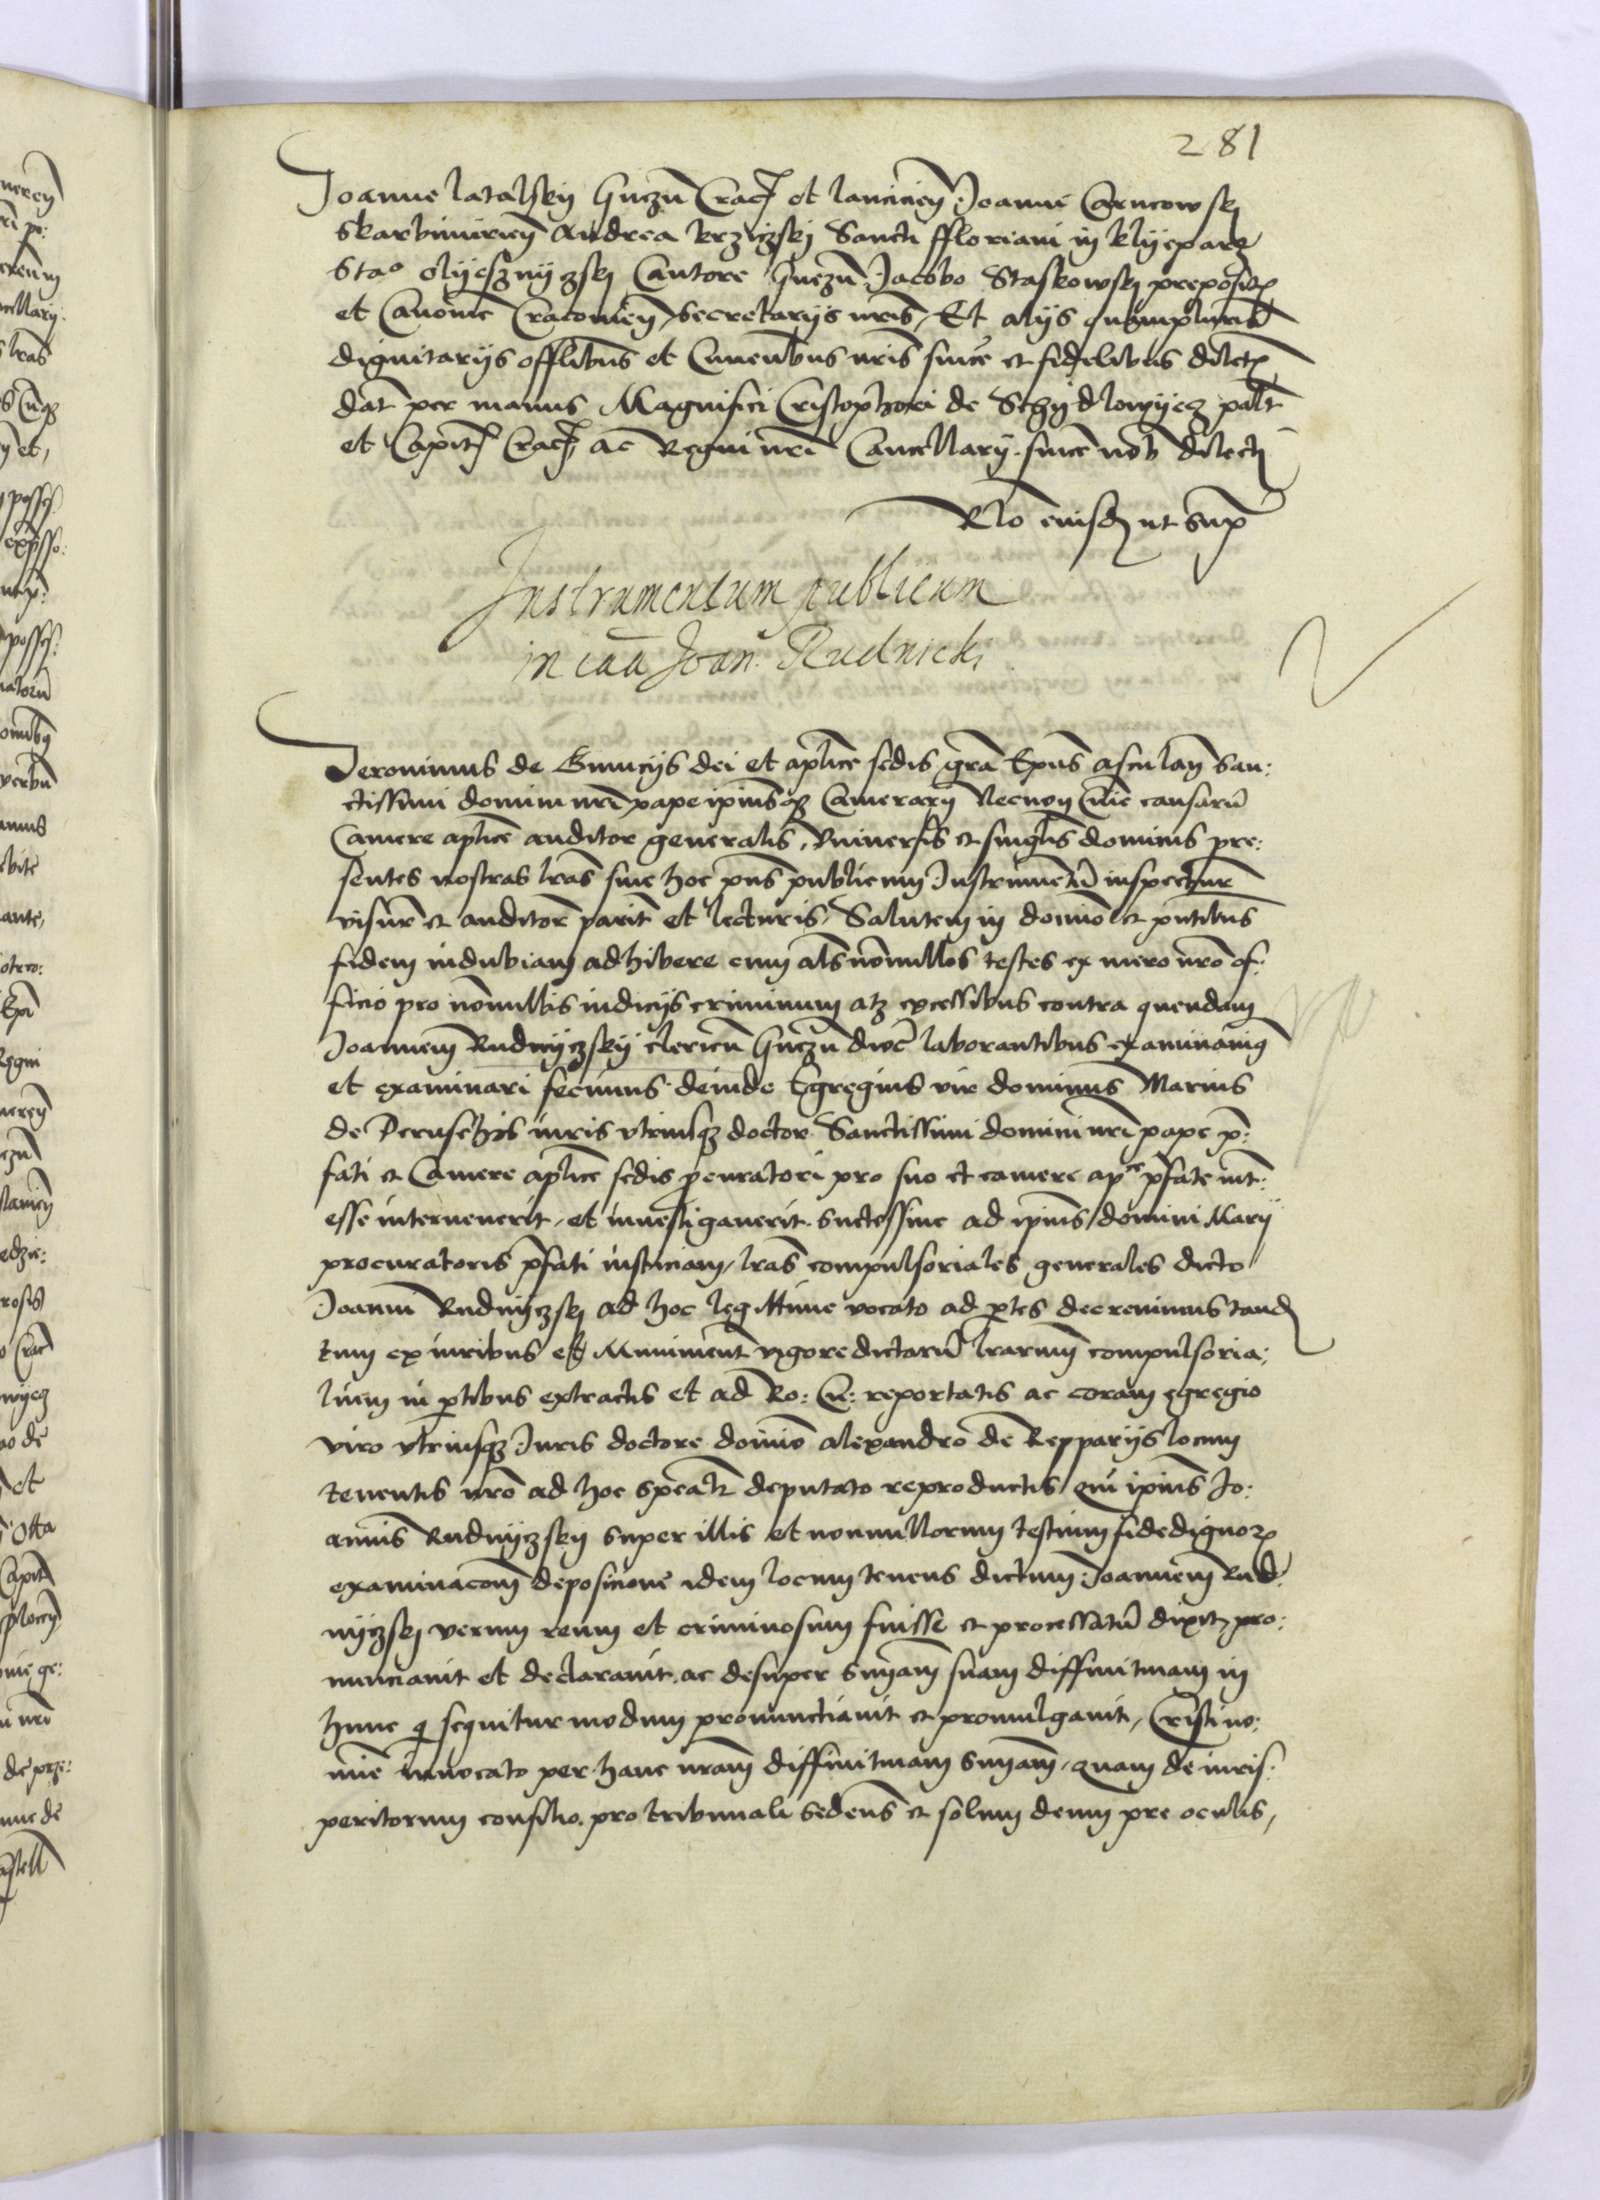 281
Joanne latalskij Gnezn̄ Crac̄ et lanciciēn Joanne Carncowskj
Skarbimiriēn Andrea krziczskj Sancti ffloriani in klijeparz
Stao olijesznijczskj Cantore Gnezn̄ Jacobo Staskowskj prepositis
et Canonic̄ Cracouiēn Secretarijs nrīs, Et alijs quāmpluribꝫ
dignitarijs offlībus et Curienbus nrīs sincē et fidelibus dilectis
Dat̄ per manus Magnifici Cristophori de Schijdlowijecz palt̄
et Capit̄ Crac̄ ac Regni nrī Cancellarij sincē nob̄ dilecti
Rlō eiusdē ut sup̄
Instrumentum publicum
in caā Joan. Rudnicki
Jeronimus de Ginucijs dei et aplicē sedis grā Epūs asculan̄ San:
ctissimi domini nrī pape ipiusqꝫ Camerarij Necnon Curie causarū
Camere aplicē auditor generalis, Vniuersis et singlīs dominis pre:
sentes nostras lrās siue hoc pn̄s publicum Instrumentū inspectur̄
visur̄ et auditor̄ parit̄ et lecturis, Salutem in domino et pn̄tibus
fidem indubiam adhibere cum als nōnullos testes ex mero nrō of:
ficio pro nōnullis indicijs criminum atqꝫ excessibus contra quendam
Joannem Rudnijczskij clericū Gnezn̄ dioc̄ laborantibus examinauimꝰ
et examinari fecimus deinde Egregius vir dominus Marius
de Peruschis iuris vtriusqꝫ doctor Sanctissimi domini nrī pape p̄:
fati et Camere aplicē sedis procuratori pro suo et camere apce p̄fate int̄:
esse interuenerit, et inuestigauerit. Successiue ad ipius domini Marij
procuratoris p̄fati instanciam, lrās compulsoriales generales dicto
Joanni Rudnijczskj ad hoc legittime vocato ad ptēs decreuimus tandē
tum ex iuribus et Muniment̄ vigore dictarū lrārum compulsoria:
lium in ptībus extractis et ad Ro: Cu: reportatis ac coram egregio
viro vtriusqꝫ Juris doctore domino alexandro de Repparijs locum
tenentis nrō ad hoc specialr̄ deputato reproductis, qui ipius Jo:
annis Rudnijczskij super illis et nonnullorum testium fidedignoꝝ
examinacōm deposicione idem locumtenens dictum Joannem Rud:
nijczskj verum reum et criminosum fuisse et processatū dixit, pro:
nunciauit et declarauit, ac desuper sniam̄ suam diffinitiuam in
hunc q̄ sequitur modum pronunctiauit et promulgauit, Cristi no:
mie inuocato per hanc nrām diffinitiuam sniam̄, quam de iuris:
peritorum consilio, pro tribunali sedens et solum deum pre oculis,